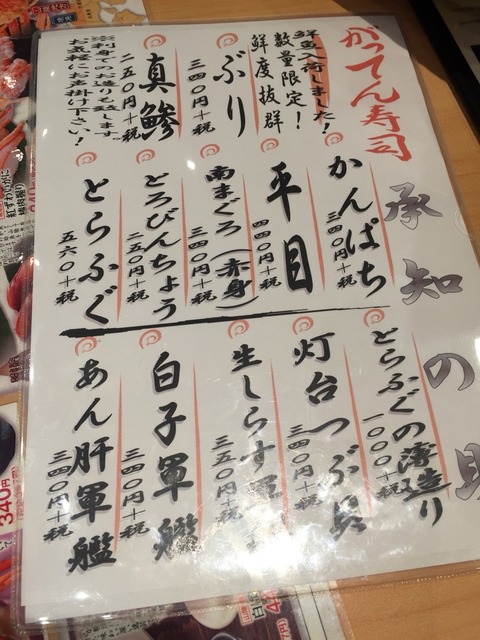 がってん寿司
承知の
鮮魚入荷しました！
数量限定！
鮮度抜群
ぶり
三四〇円＋税
真鯵
二五〇円＋税
※刺身でのお造りも致します。
お気軽にお声掛け下さい！
かんぱち
三四〇円＋税
平目
四四〇円＋税
南まぐろ（赤身）
三四〇円＋税
とろびんちょう
二五〇円＋税
とらふぐ
五六〇＋税
とらふぐの薄造り
一〇〇〇＋税
灯台つぶ貝
三四〇円＋税
生しらす軍艦
三五〇円＋税
白子軍艦
三四〇円＋税
あん肝軍艦
三四〇円＋税
340円